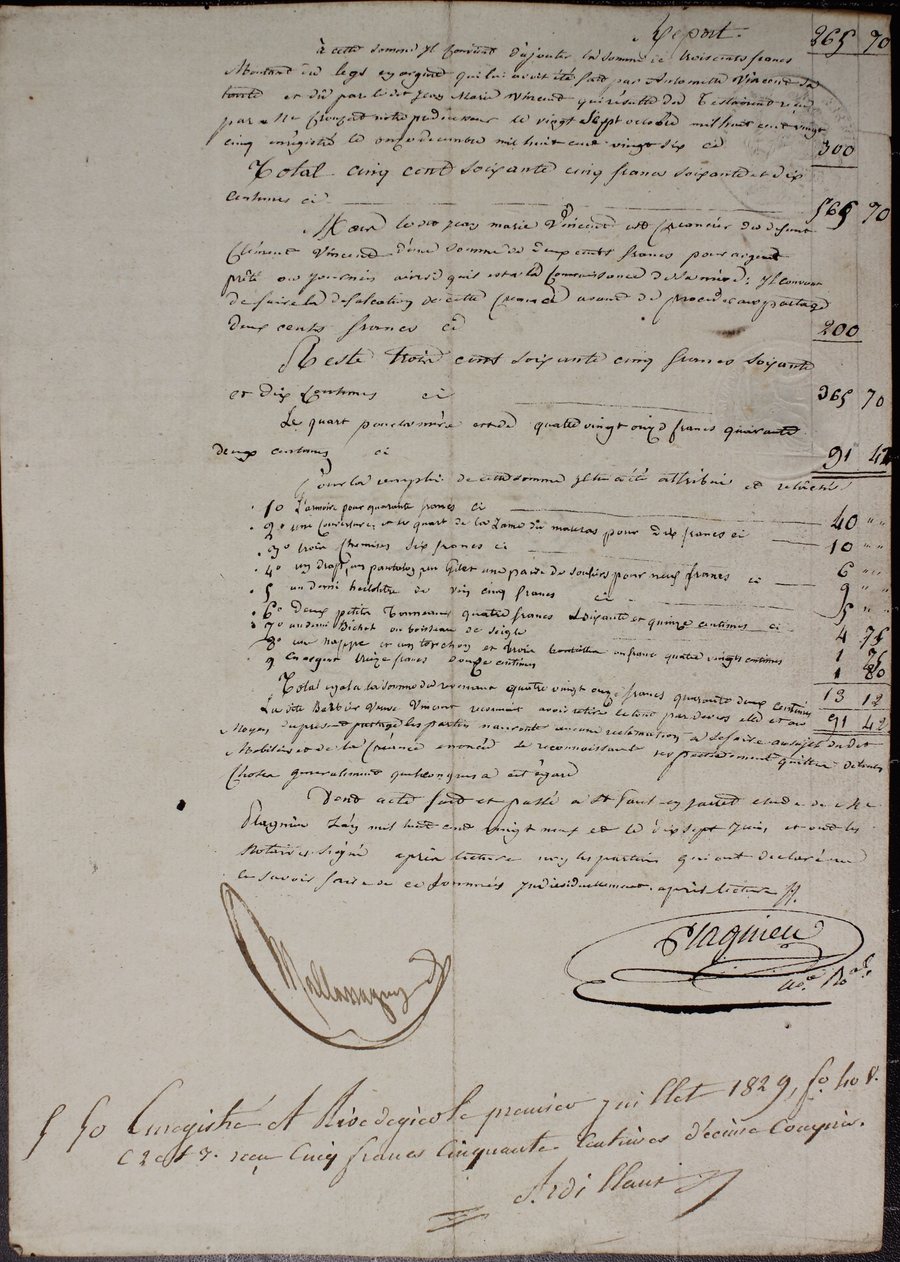 Report. 265 70
à cette somme il convient d'ajouter la somme de trois cents francs
Montant du legs en argent qui lui avoit été fait par Antoinette Vincend sa
tante et dû par le dit Jean Marie Vincend qui résulte du Testament reçu
par Me Crouzet notre prédécesseur le vingt sept octobre mil huit cent vingt
cinq enregistré le onze decembre mil huit cent vingt six ci 300
Total cinq cent soixante cinq francs soixante et dix
centimes ci 565 70
Mais le dit Jean marie Vincend est Créancier du défunt
Clément Vincend d'une somme de deux cents francs pour argent
prêté ou journées ainsi qu'il est à la Connaissance de sa mère; il convient
de faire la défalcation de cette Créance avant de procéder au partage
deux cents francs ci 200
Reste trois cent soixante cinq francs soixante
et dix centimes ci 365 70
Le quart pour la mère est de quatre vingt onze francs quarante
deux centimes ci 91 42
Pour la remplir de cette somme il lui a été attribué et relâché
1o L'armoire pour quarante francs ci 40 " "
2o une Couverture, et le quart de la Laine du matelas pour dix francs ci 10 " "
3o trois Chemises six francs ci 6 " "
4o un drap, un pantalon, un Gilet une paire de souliers pour neuf francs ci 9 " "
5 un demi hectolitre de vin cinq francs ci 5 " "
6o deux petits Tonneaux quatre francs soixante et quinze centimes ci 4 75
7o un demi Bichet ou boisseau de seigle 1 75
8o une nappe et un torchon et trois bouteilles un franc quatre vingts centimes 1 80
9 En argent treize francs douze centimes 13 12
Total égal à la somme de revenant quatre vingt onze francs quarante deux centimes 91 42
La dite Barbier Veuve Vincent reconnoit avoir retiré le tout par devers elle et au
Moyen du présent partage les parties n'auront aucune réclamation à se faire au sujet du dit
Mobilier et de la Créance énoncée se reconnoissant respectivement quittes de toutes
Choses generalement quelconques à cet égard
Dont acte fait et passé à St Paul en Jarret etude de Me
Plagnieu L'an mil huit cent vingt neuf et le dix sept Juin, et ont les
Notaires signé après lecture non les parties qui ont declaré ne
le savoir faire de ce sommées individuellement. après lecture
Mallassagny
Plagnieu
No. Ro.
5 50 Enregistré à Rivedegier le premier juillet 1829, fo. 40 v.
C 2 et 3. reçu Cinq francs Cinquante Centimes décime Compris.
Ardillant